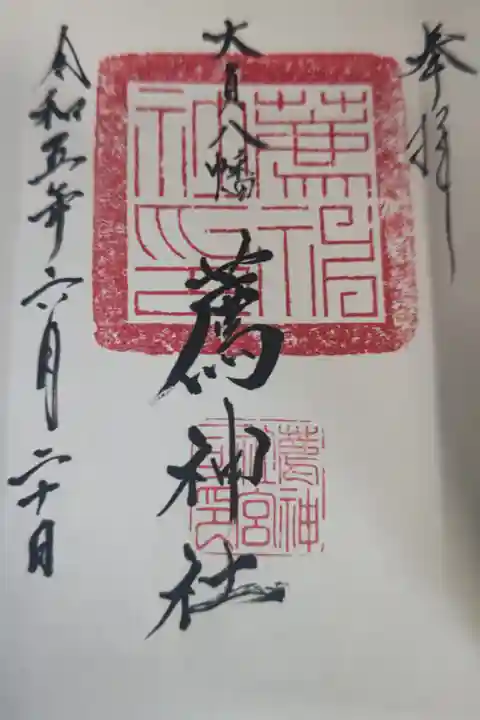 奉拝
大貞八幡
薦神社
薦神社之印
薦神社宮司之印
令和五年六月二十日